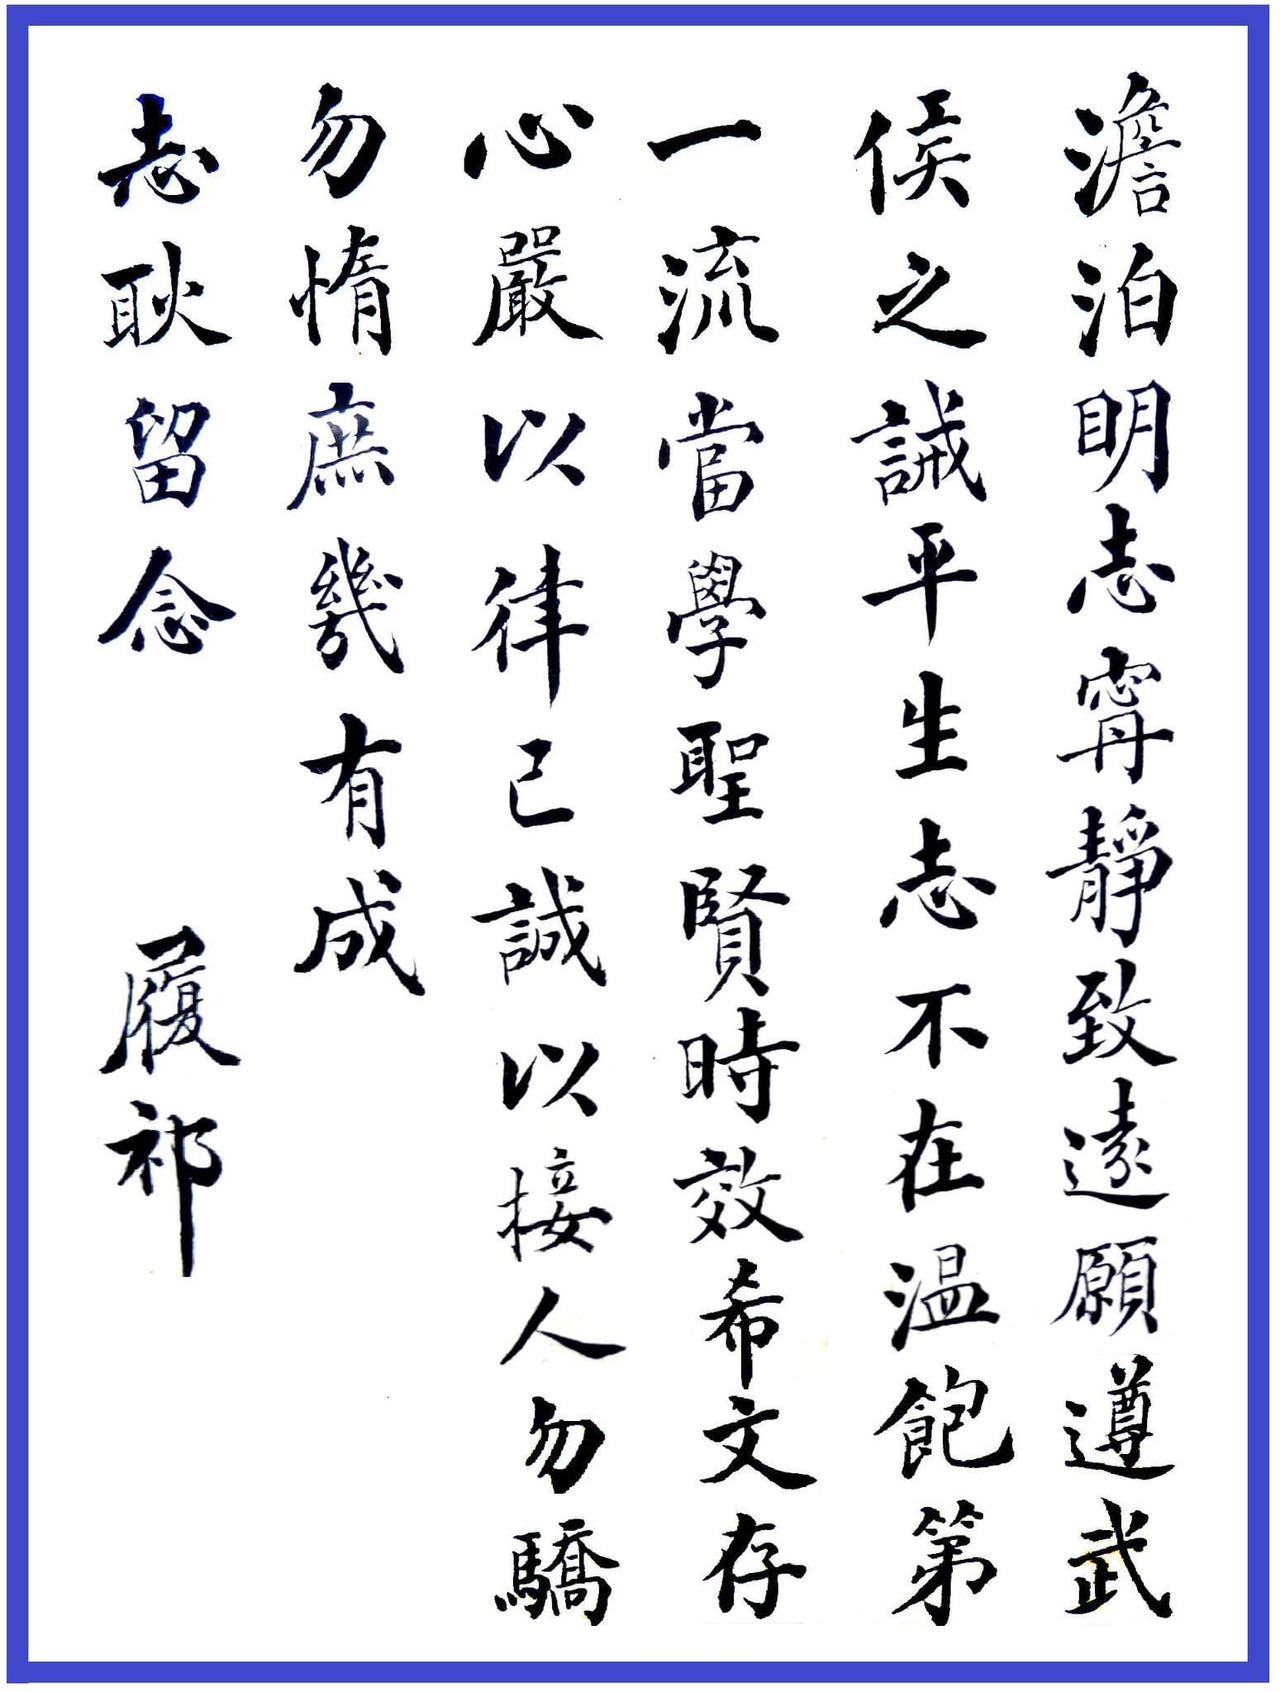 澹泊明志甯靜致遠願遵武
侯之誡平生志不在温飽第
一流當學聖賢時效希文存
心嚴以律己誠以接人勿驕
勿惰庶幾有成
志耿留念
履祁